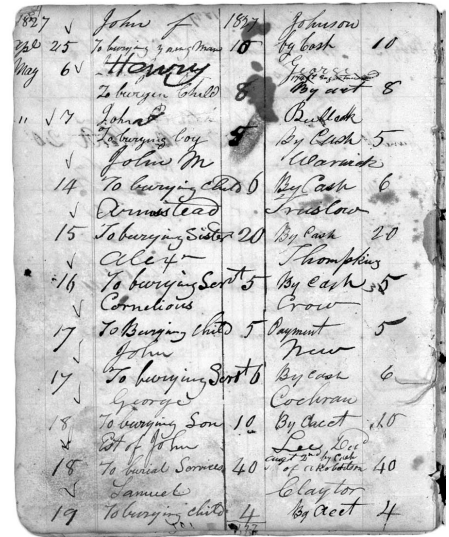 1827 John 1827 Johnson
Apl 25 To burying young Man 10 by Cash 10
May 6 Henry George
To buryin Child 8 By act 8
" 17 John Bullock
To burying boy 5 By Cash 5
John M Warwick
14 To burying Child 6 By Cash 6
Armistead Truslow
15 To burying Sister 20 By Cash 20
Alexr Thompkins
16 To burying Servt 5 By Cash 5
Cornelious Crow
17 To Burying Child 5 Payment 5
John New
17 To burying Servt 6 By Cash 6
George Cochran
18 To burying Son 10 By Acct 10
Est of John Lee Decd
augt 2nd by Cash
18 To burial Services 40 of 40
Samuel Claytor
19 To burying Child 4 By Acct 4